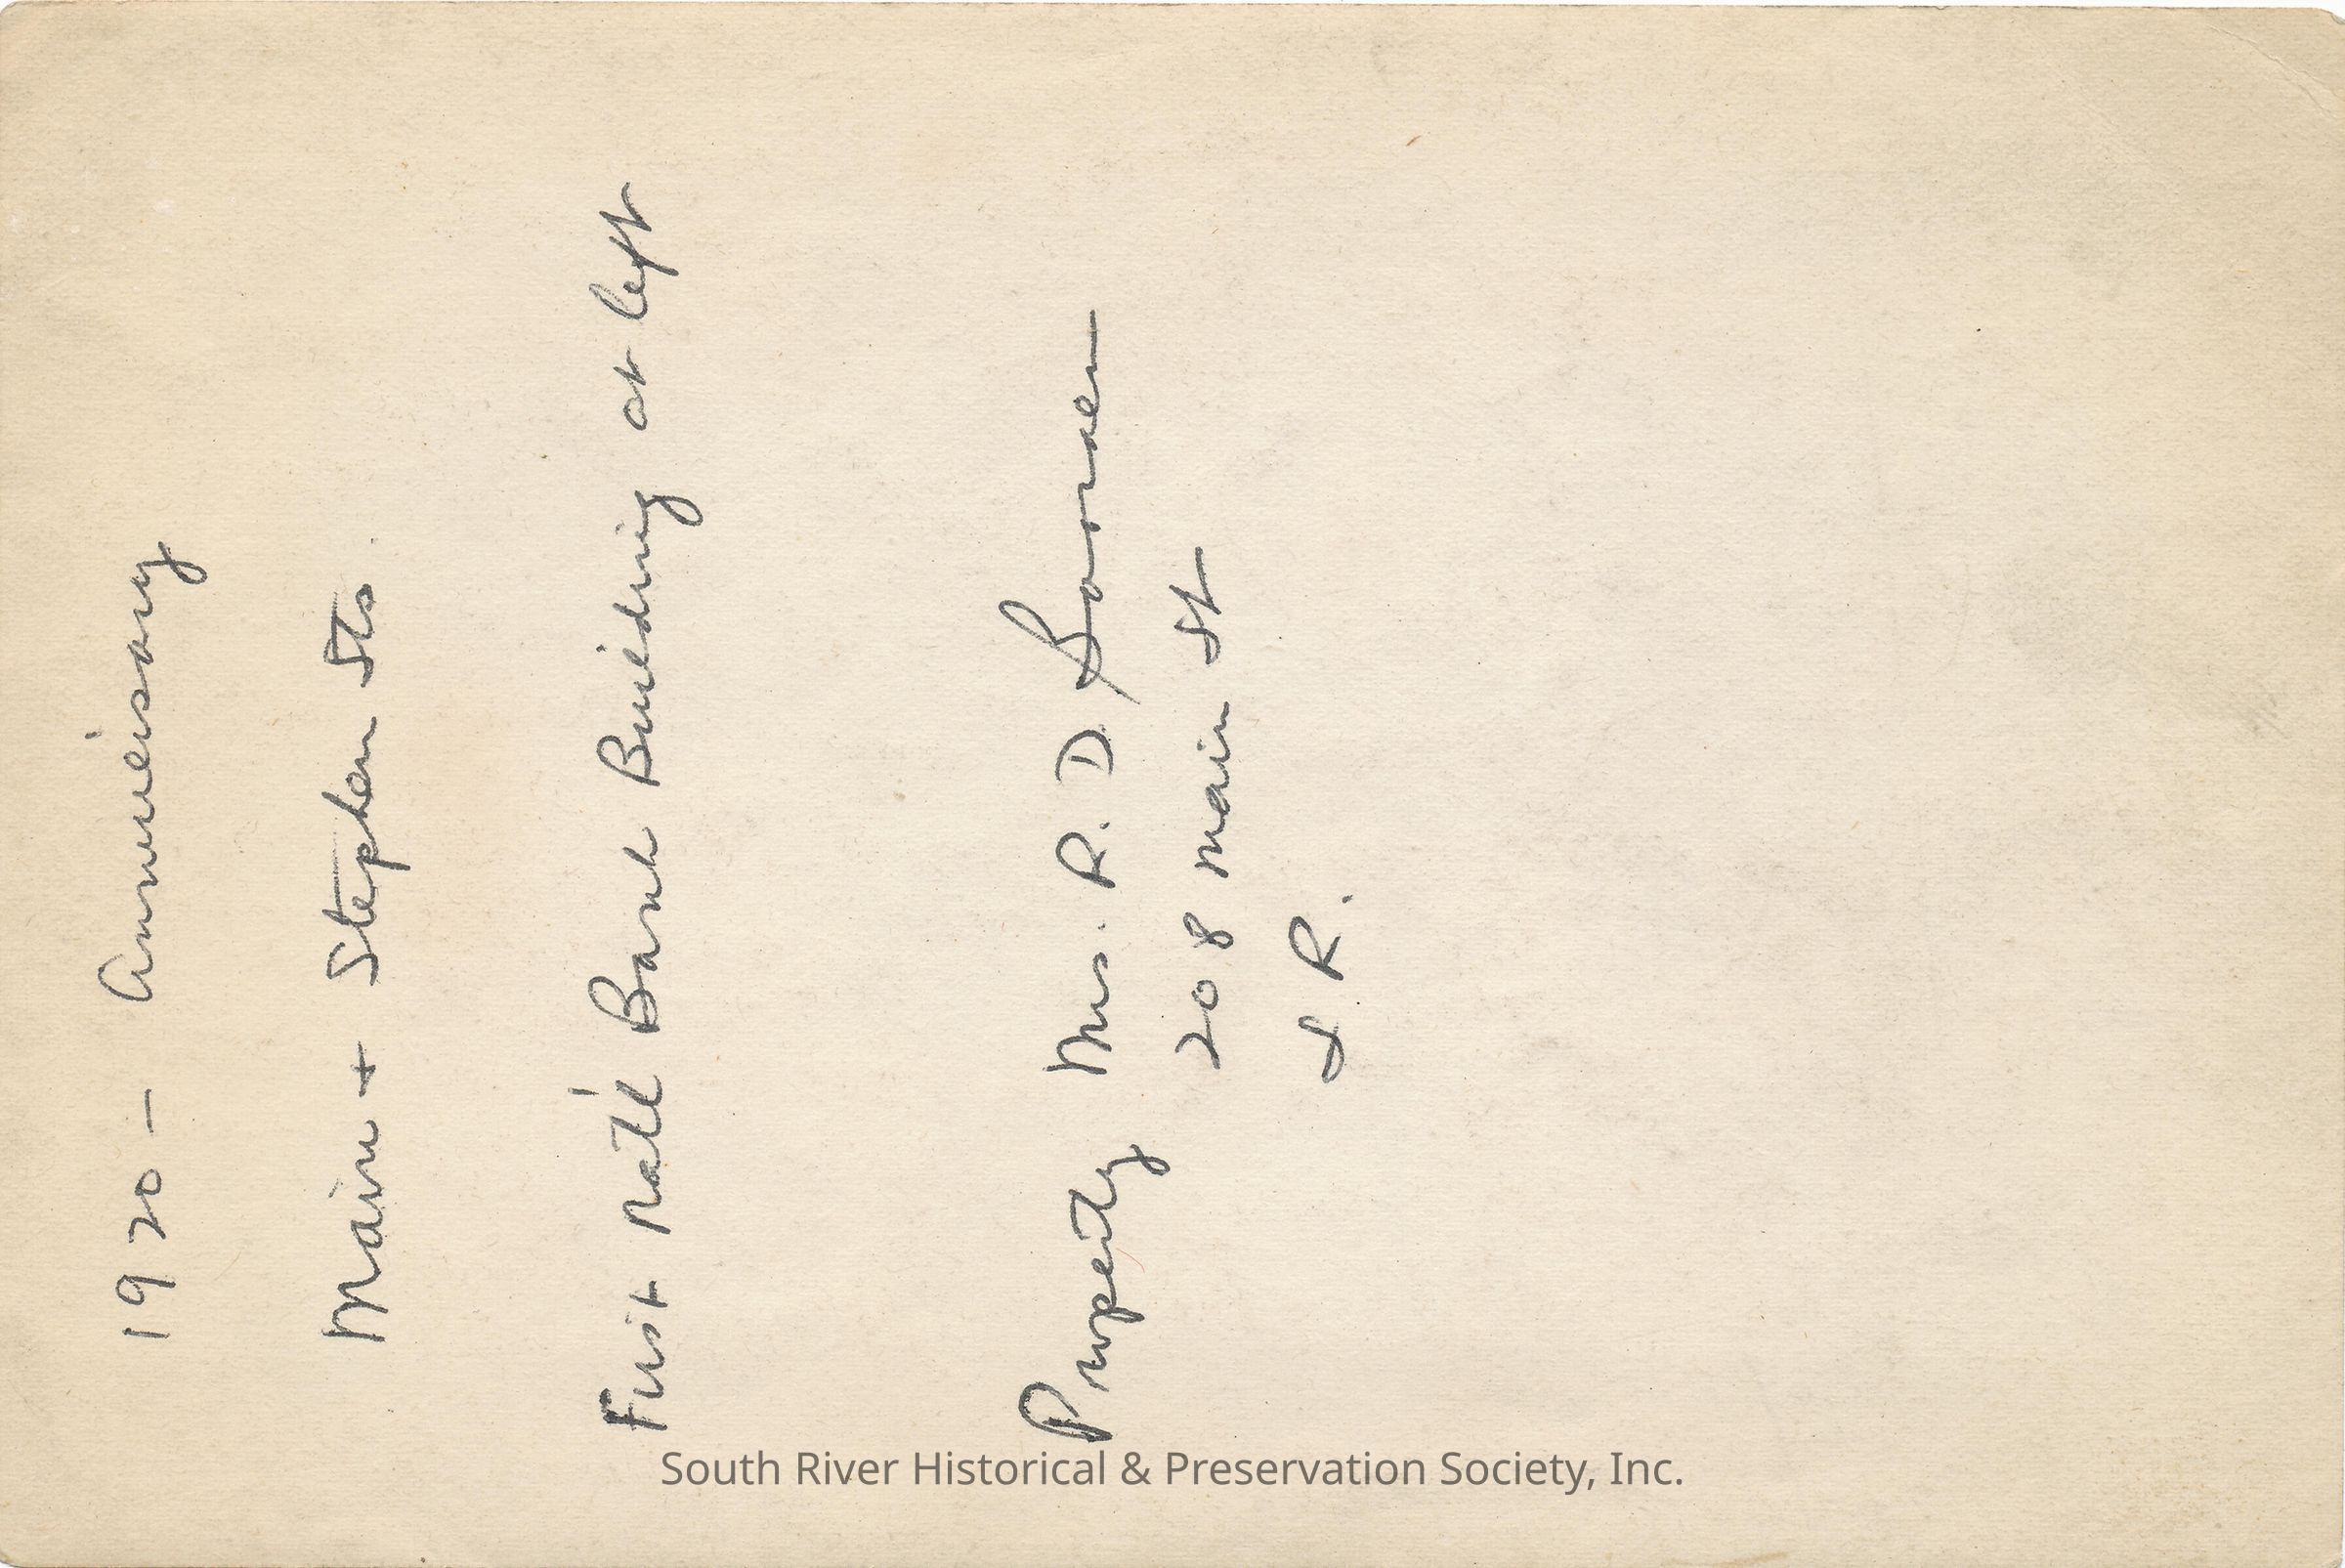 1920 - Anniversary
Main + Stephen Sts.
First Nat'l Bank Building at left
Property Mrs. R. D.
208 Main St
S. R.
South River Historical & Preservation Society, Inc.